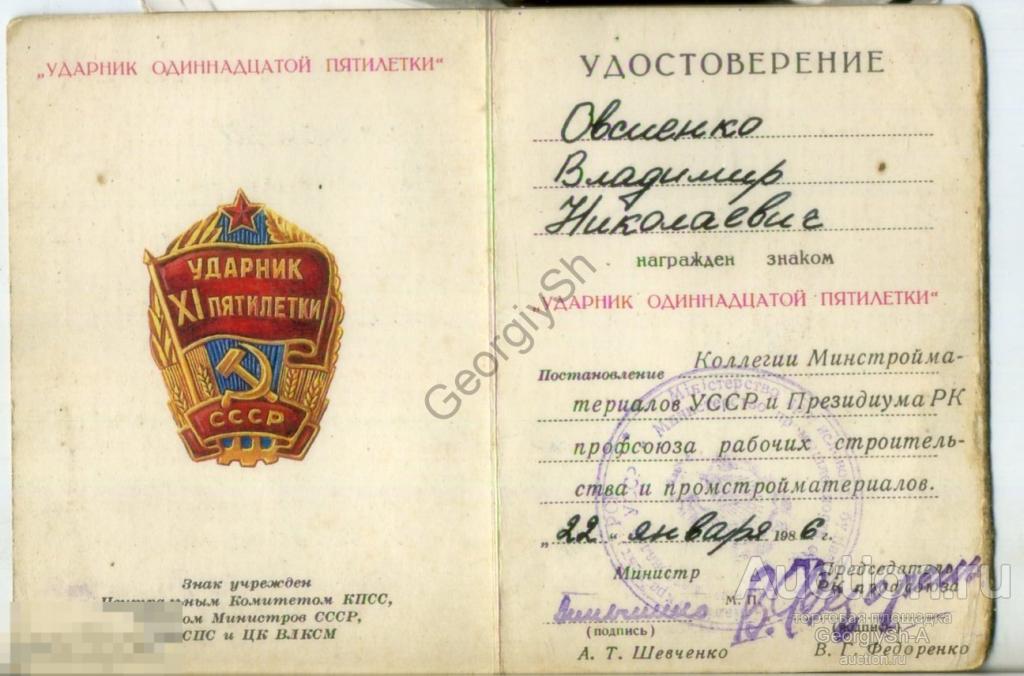 „УДАРНИК ОДИННАДЦАТОЙ ПЯТИЛЕТКИ“
УДАРНИК
XI ПЯТИЛЕТКИ
СССР
Знак учрежден
Центральным Комитетом КПСС,
ом Министров СССР,
СПС и ЦК ВЛКСМ
УДОСТОВЕРЕНИЕ
Овсиенко
Владимир
Николаевич
награжден знаком
„УДАРНИК ОДИННАДЦАТОЙ ПЯТИЛЕТКИ“
Постановление Коллегии Минстройма-
териалов УССР и Президиума РК
профсоюза рабочих строитель-
ства и промстройматериалов.
„22“ января 1986 г.
Министр
Председатель
РК профсоюза
М. П.
(подпись)
(подпись)
А. Т. Шевченко
В. Г. Федоренко
GeorgiySh
Auction.ru
торговая площадка
GeorgiySh-A
auction.ru